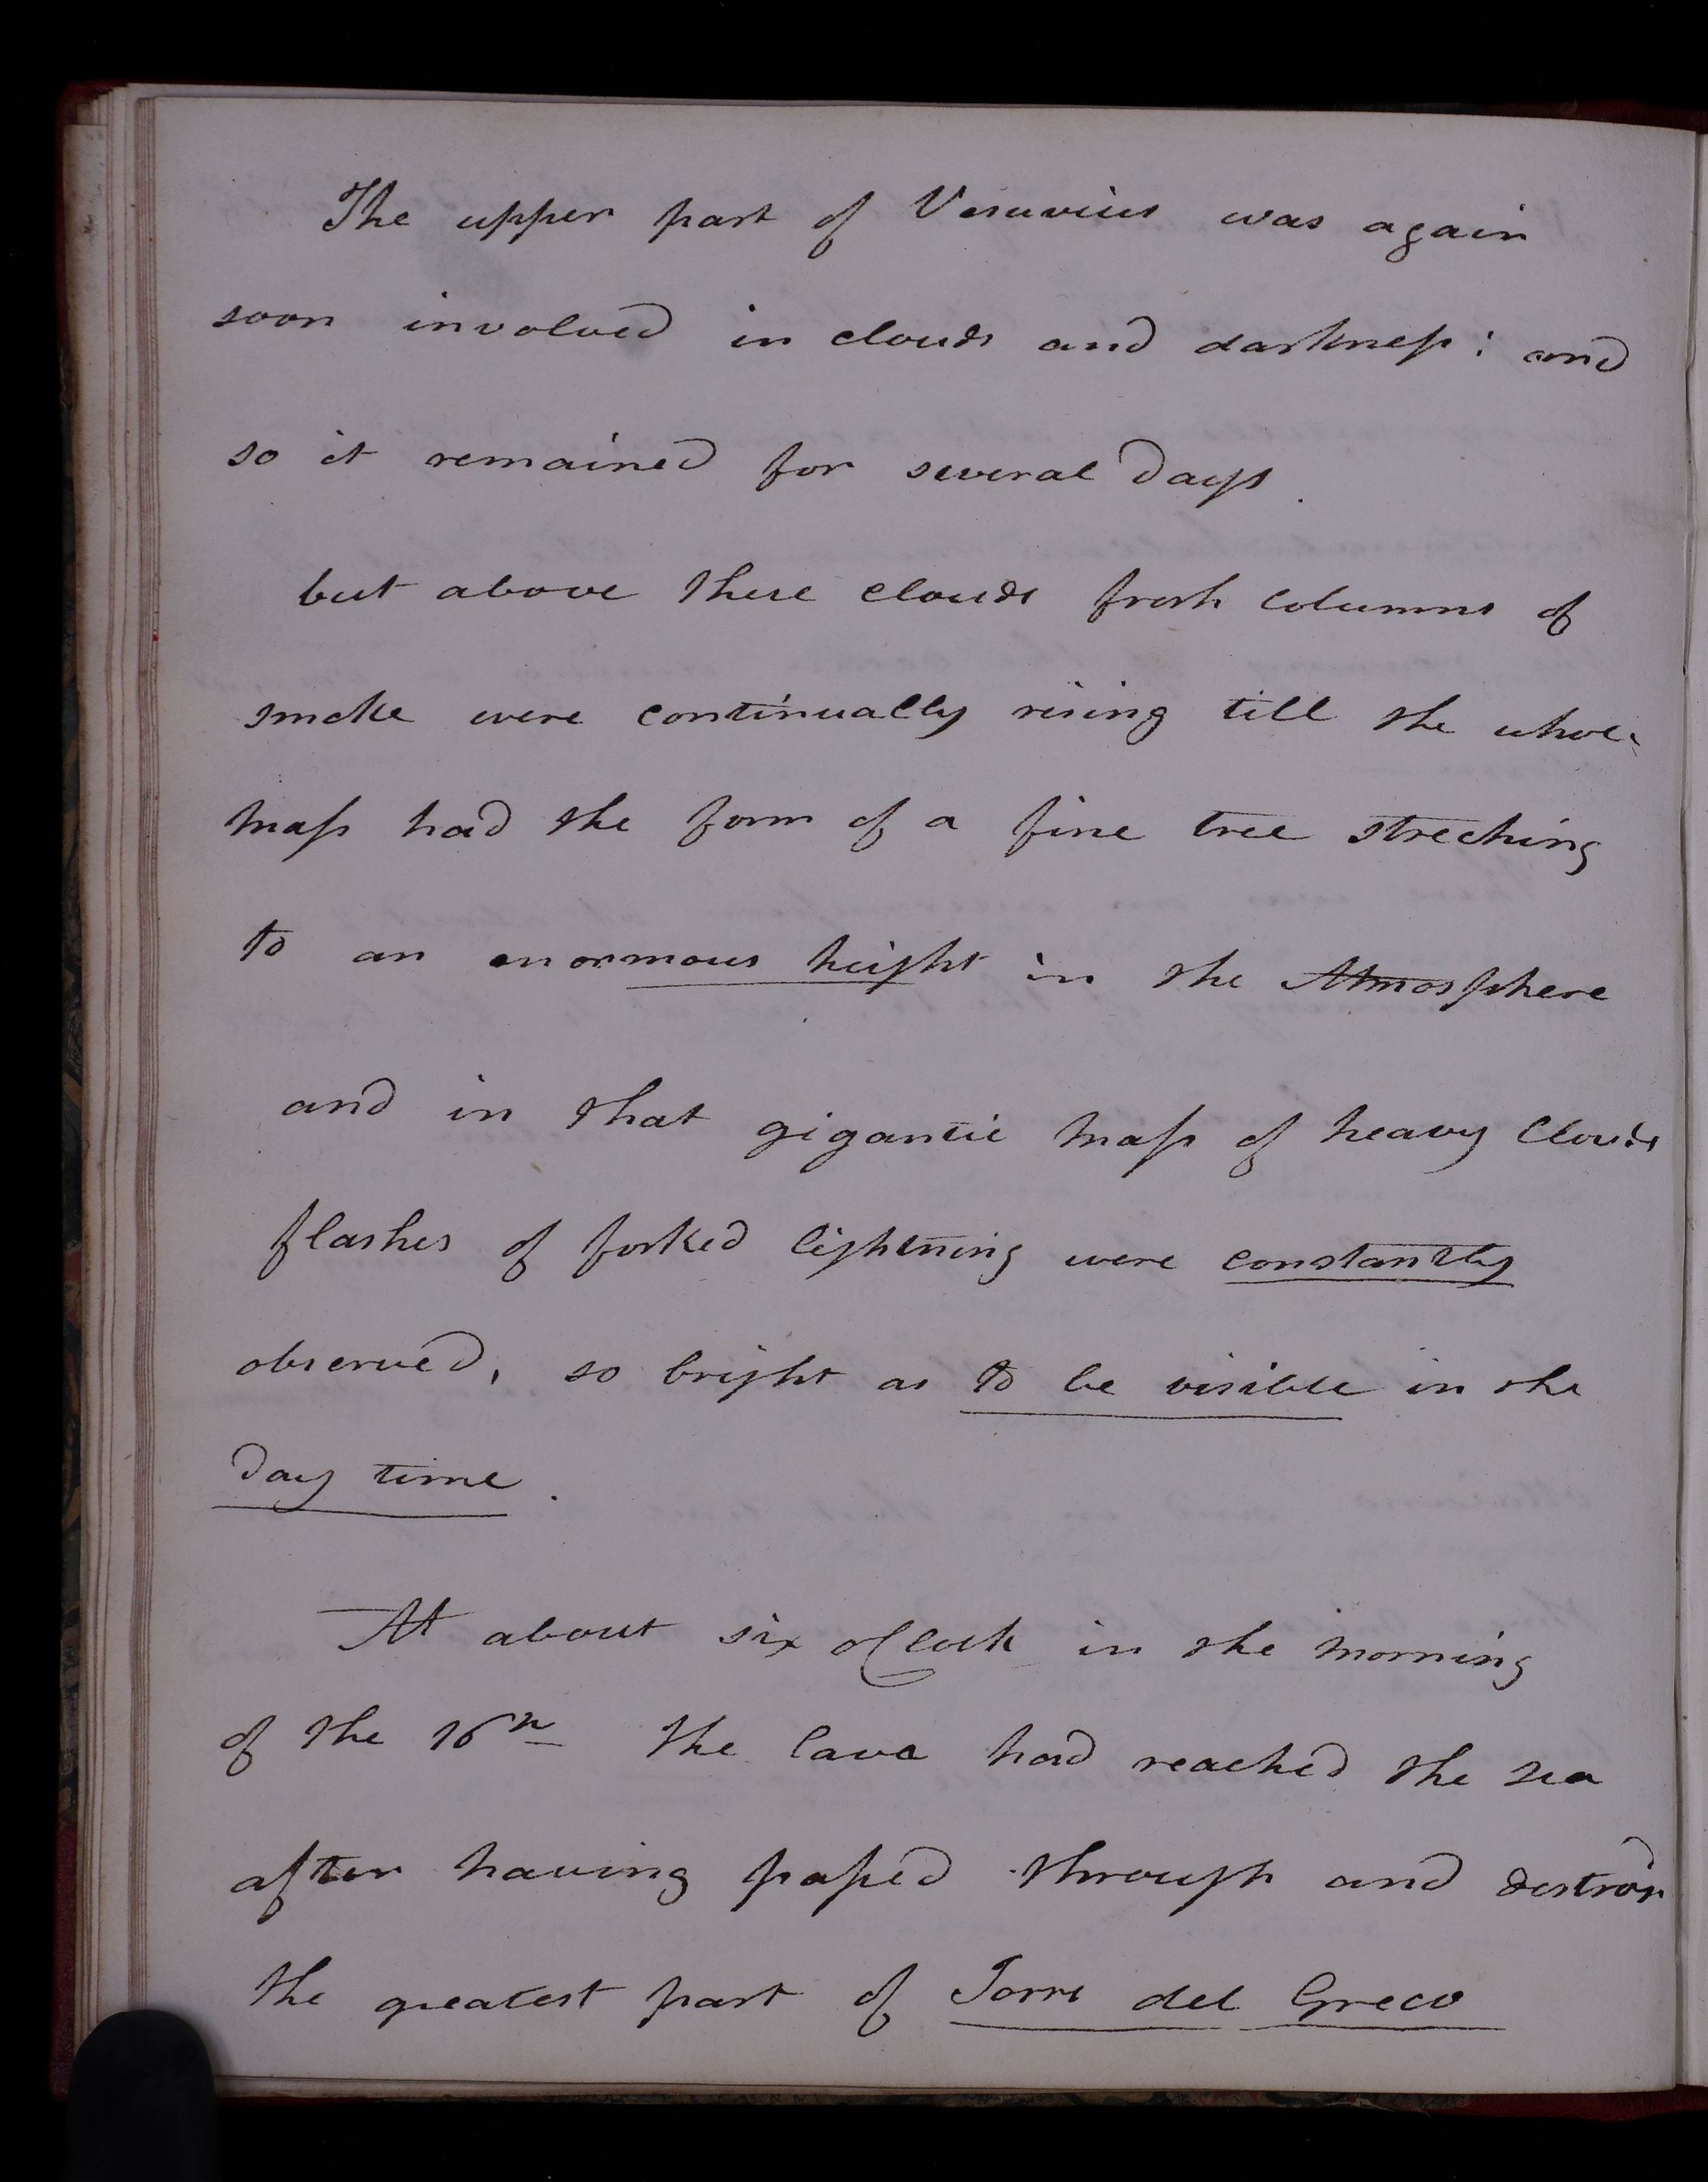 The upper part of Vesuvius was again
soon involved in clouds and darkness: and
so it remained for several days.
but above these clouds fresh columns of
smoke were continually rising till the whole
mass had the form of a fine tree streching
to an enormous height in the Atmosphere
and in that gigantic mass of heavy Clouds
flashes of forked lightning were constantly
observed, so bright as to be visible in the
day time.
At about six oClock in the morning
of the 16th the lava had reached the sea
after having passed through and destroyd
the greatest part of Torre del Greco